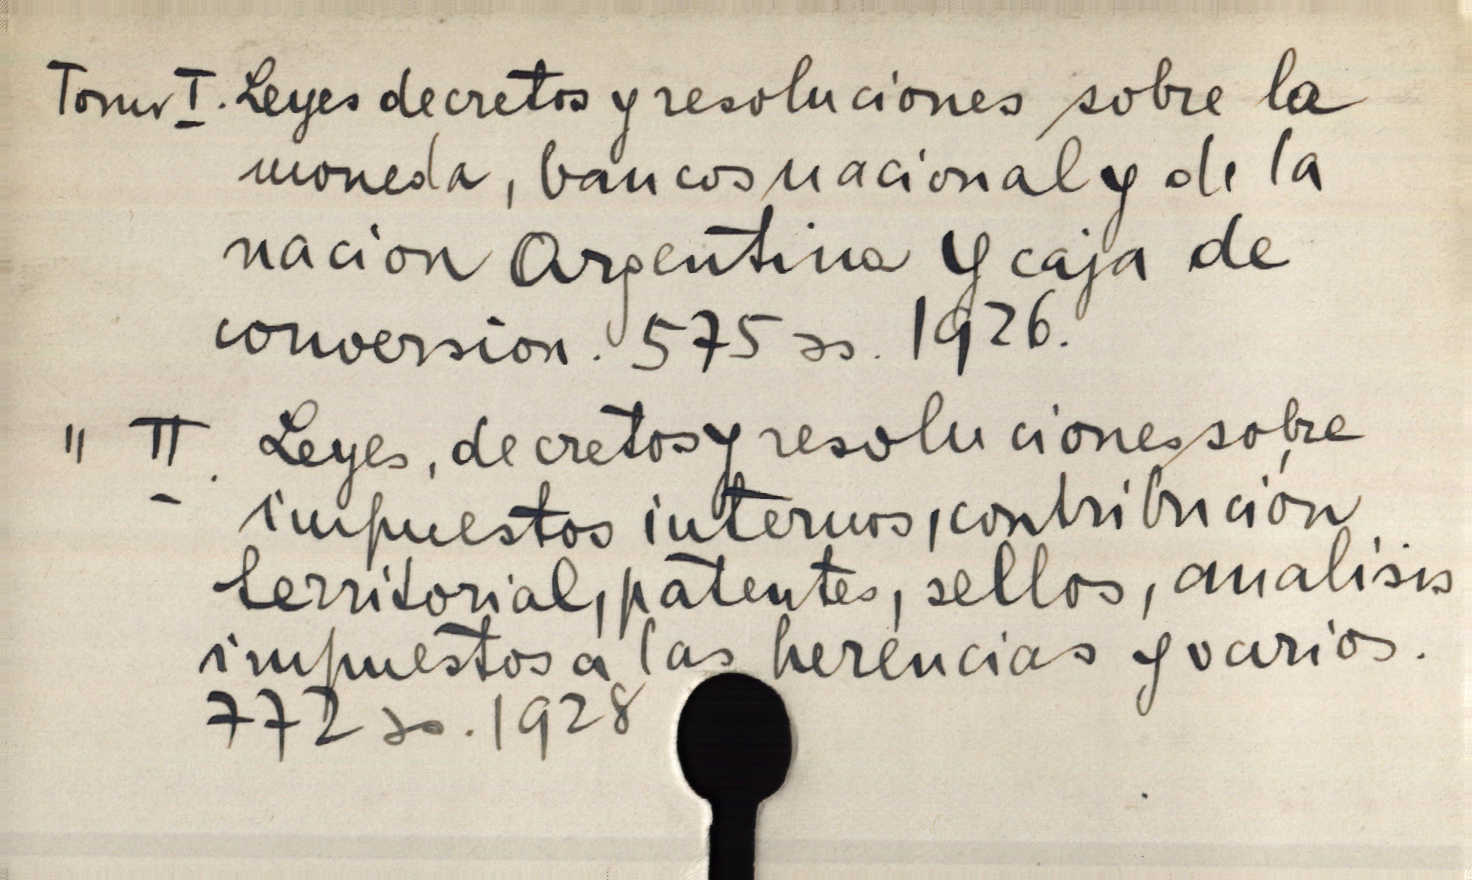 Tomo I. Leyes decretos y resoluciones sobre la
moneda, bancos nacional y de la
nacion Argentina y caja de
conversion. 575 ss. 1926.
" II. Leyes, decretos y resoluciones sobre
impuestos internos, contribución
territorial, patentes, sellos, analisis
impuestos a las herencias y varios.
772 ss. 1928